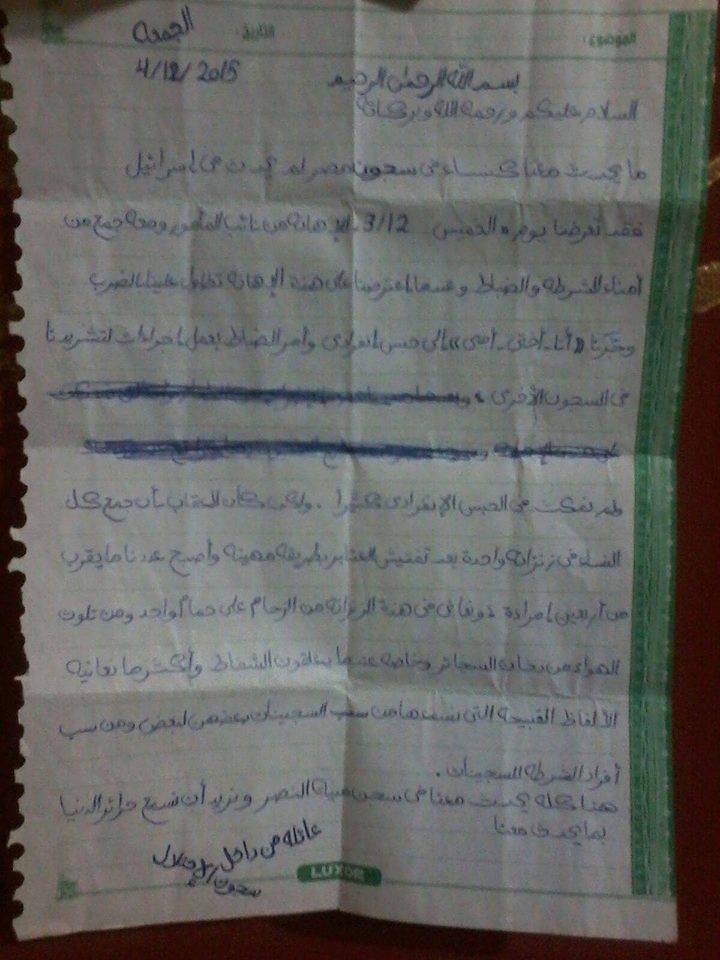 الموضوع: التاريخ: الجمعه
4/12/2015
بسم الله الرحمن الرحيم
السلام عليكم ورحمة الله وبركاته
ما يحدث معنا كنساء فى سجون مصر لم يحدث فى إسرائيل
فقد تعرضنا يوم الخميس 3/12 للإهانه من نائب المأمور ومعه جمع من
أمناء الشرطه والضباط وعندما اعترضنا على هذه الإهانه تطاول علينا بالضرب
«أنا - أختى - أمى» إلى حبس إنفرادى وأمر الضباط بعمل إجراءات لتشريدنا
فى السجون الأخرى
ولم نمكث فى الحبس الإنفرادى كثيراً. ولكن كان العقاب بأن جمع كل
النساء فى زنزانة واحدة بعد تفتيش العنابر بطريقه مهينه وأصبح عددنا ما يقرب
من أربعين إمراءة نعانى فى هذه الزنزانه من الزحام على حمام واحد ومن تلوث
الهواء من دخان السجائر وخاصه عندما يغلقون الشفاط وأكثر ما نعانيه
الألفاظ القبيحة التى نسمعها من سب السجينات بعضهن لبعض ومن سب
أفراد الشرطه للسجينات.
هذا كله يحدث معنا فى سجن منية النصر ونريد أن نسمع حرائر الدنيا
بما يحدث معنا
عائله من داخل
سجون الإحتلال
LUXOR